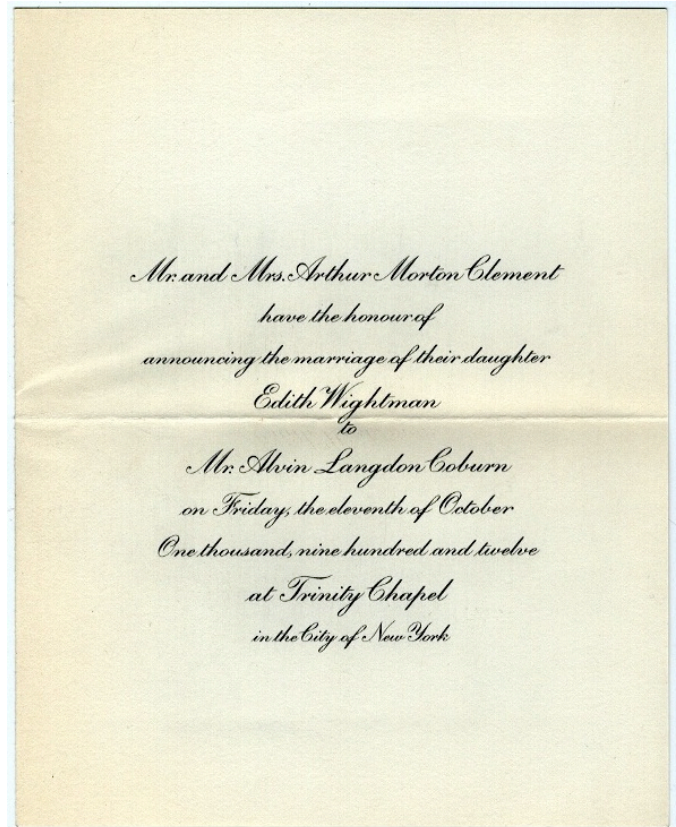 Mr. and Mrs. Arthur Morton Clement
have the honour of
announcing the marriage of their daughter
Edith Wightman
to
Mr. Alvin Langdon Coburn
on Friday, the eleventh of October
One thousand, nine hundred and twelve
at Trinity Chapel
in the City of New York